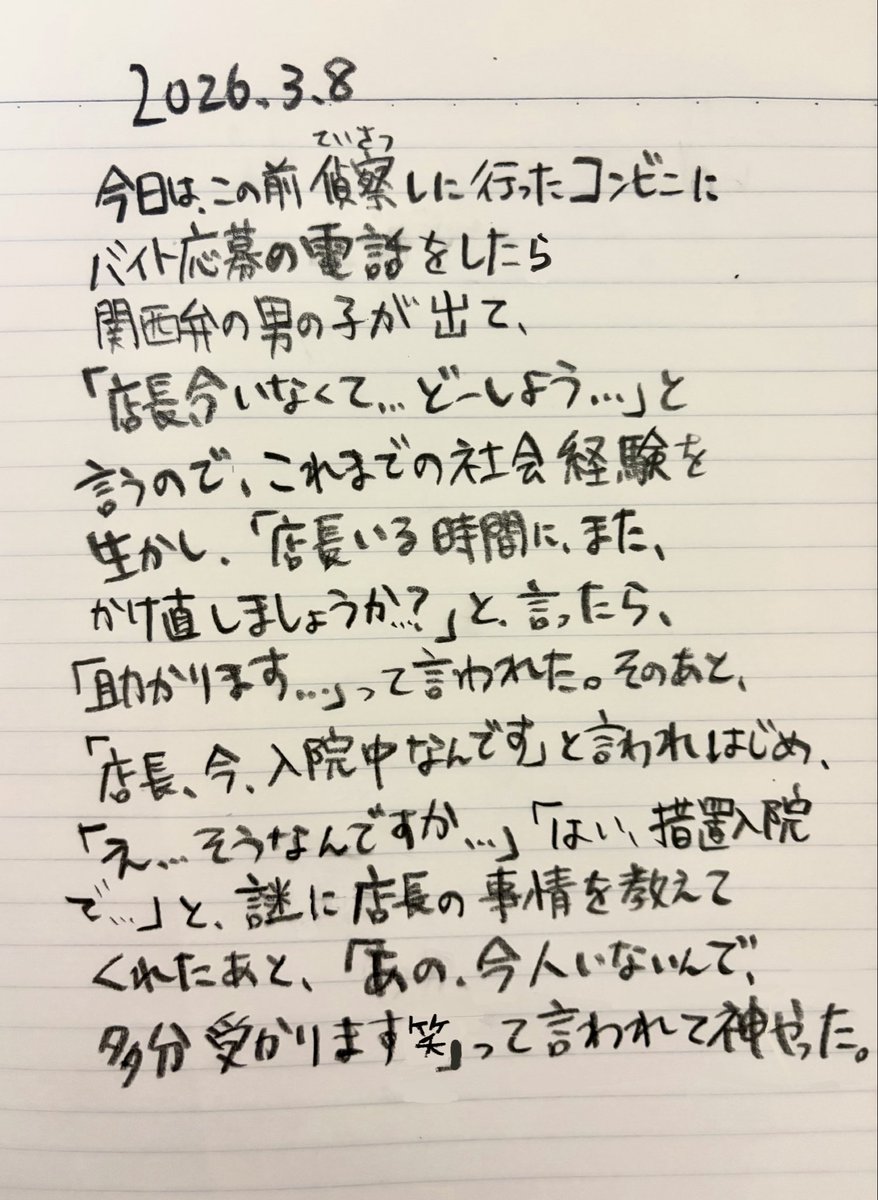 2026.3.8
ていさつ
今日は、この前偵察しに行ったコンビニに
バイト応募の電話をしたら
関西弁の男の子が出て、
「店長今いなくて…どーしよう…」と
言うので、これまでの社会経験を
生かし、「店長いる時間に、また、
かけ直しましょうか…?」と、言ったら、
「助かります…」って言われた。そのあと、
「店長、今、入院中なんです」と言われはじめ、
「え…そうなんですか…」「はい、措置入院
で…」と、謎に店長の事情を教えて
くれたあと、「あの、今人いないんで、
多分受かります笑」って言われて神やった。